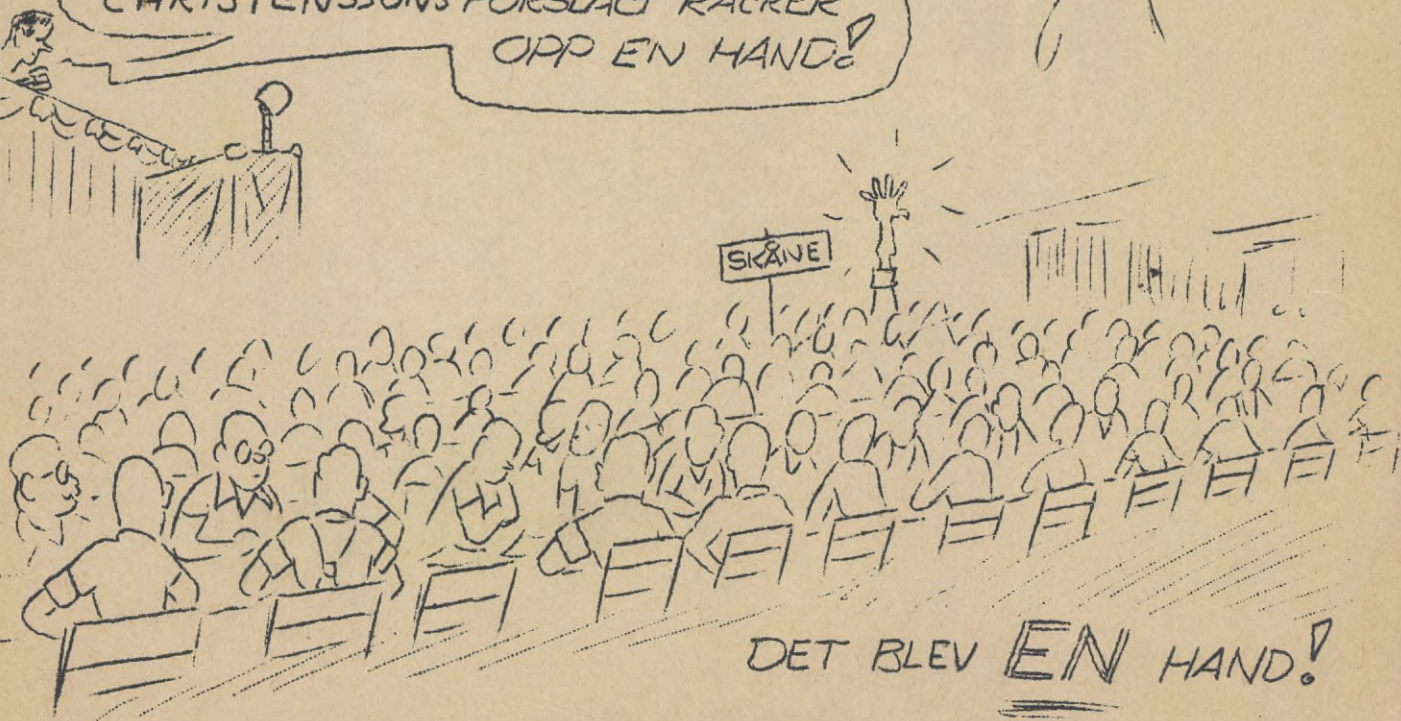 CHRISTENSSONS FÖRSLAG RÄCKER
OPP EN HAND!
SKÅNE
DET BLEV EN HAND!